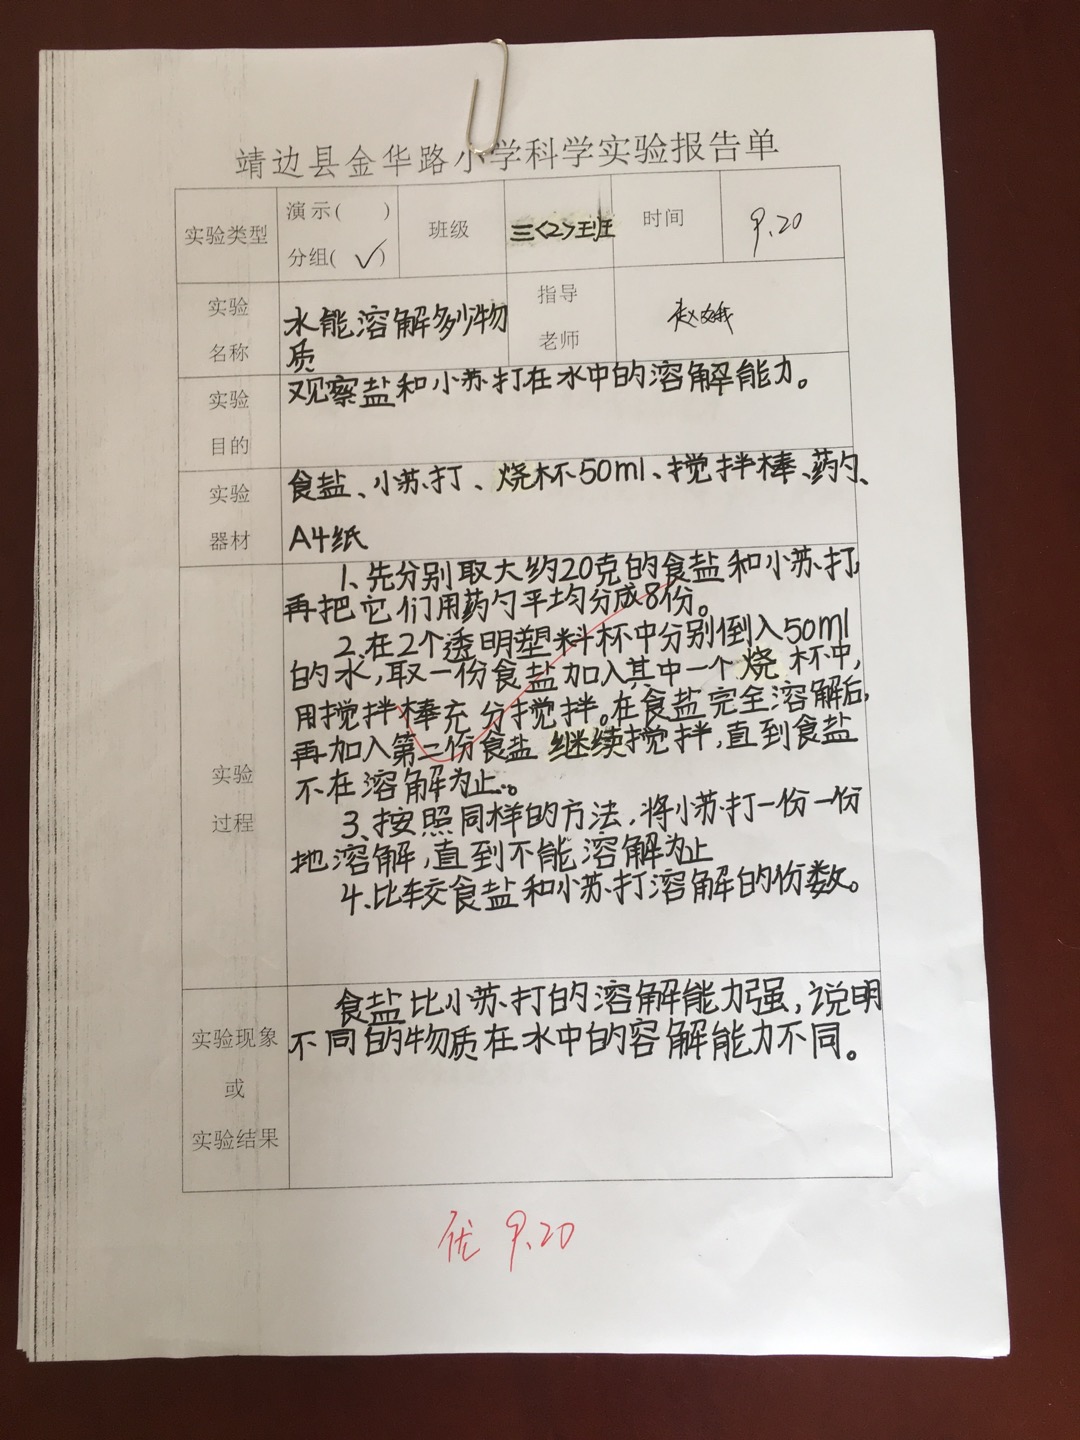 靖边县金华路小学科学实验报告单
实验类型 演示( ) 分组( ✓ ) 班级 三<2>班 时间 9.20
实验名称 水能溶解多少物质 指导老师
实验目的 观察盐和小苏打在水中的溶解能力。
实验器材 食盐、小苏打、烧杯50ml、搅拌棒、药勺、
A4纸
实验过程
1、先分别取大约20克的食盐和小苏打,
再把它们用药勺平均分成8份。
2、在2个透明塑料杯中分别倒入50ml
的水,取一份食盐加入其中一个烧杯中,
用搅拌棒充分搅拌。在食盐完全溶解后,
再加入第二份食盐继续搅拌,直到食盐
不在溶解为止。
3、按照同样的方法,将小苏打一份一份
地溶解,直到不能溶解为止
4、比较食盐和小苏打溶解的份数。
实验现象或实验结果
食盐比小苏打的溶解能力强,说明
不同的物质在水中的容解能力不同。
优 9.20